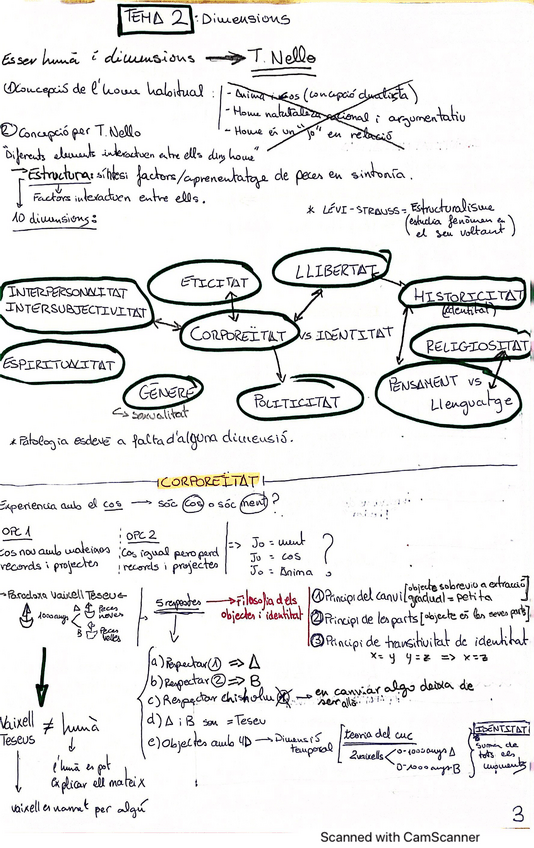 TEMA 2 : Dimensions
Esser humà i dimensions → T. Nello
① Concepció de l'home habitual :
- Ànima i cos (concepció dualista)
- Home naturalesa racional i argumentatiu
- Home és un "jo" en relació
② Concepció per T. Nello
"Diferents elements interactuen entre ells dins home"
→ Estructura: síntesi factors/aprenentatge de peces en sintonia.
Factors interactuen entre ells.
10 dimensions:
* LÉVI-STRAUSS = Estructuralisme
(estudia fenòmen en
el seu voltant)
INTERPERSONALITAT
INTERSUBJECTIVITAT
ETICITAT
LLIBERTAT
HISTORICITAT
(identitat)
CORPOREÏTAT vs IDENTITAT
RELIGIOSITAT
ESPIRITUALITAT
GÈNERE
↳ sexualitat
POLITICITAT
PENSAMENT vs
Llenguatge
* Patologia esdevé a falta d'alguna dimensió.
CORPOREÏTAT
Experiència amb el cos → sóc cos o sóc ment?
OPC 1
cos nou amb mateixos
records i projectes
OPC 2
cos igual però perd
records i projectes
=> Jo = ment
Jo = cos
Jo = Ànima
?
→ Paradoxa Vaixell Teseus
1000 anys
A Peces noves
B Peces velles
5 respostes → Filosofia dels
objectes i identitat
① Principi del canvi gradual = petita [objecte sobreviu a extracció]
② Principi de les parts [objecte és les seves parts]
③ Principi de transitivitat de identitat
x = y y = z => x = z
a) Respectar ① => A
b) Respectar ② => B
c) Respectar chisholm → en canviar algo deixa de
ser allò.
d) A i B són = Teseu
e) Objectes amb 4D → Dimensió
temporal
teoria del cuc
2 vaixells
0-1000 anys A
0-1000 anys B
IDENTITAT
Suma de
tots els
moments
Vaixell
Teseus ≠ humà
l'humà es pot
explicar ell mateix
vaixell es narrat per algú
3
Scanned with CamScanner